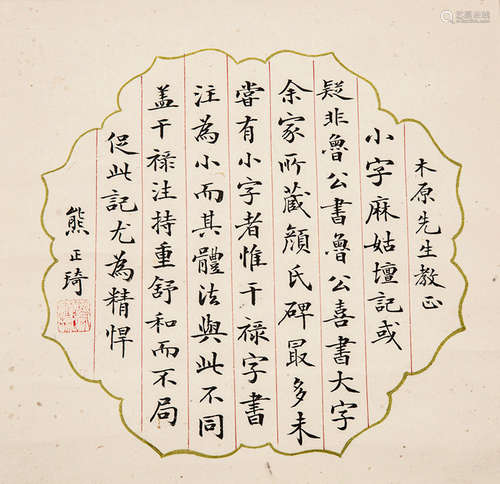 木原先生教正
小字麻姑壇記或
疑非魯公書魯公喜書大字
余家所藏顏氏碑最多未
嘗有小字者惟干祿字書
注為小而其體法與此不同
盖干祿注持重舒和而不局
促此記尤為精悍
熊正琦